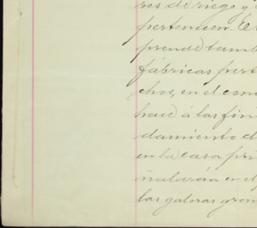 res de riego y
pertenecen. 
prende tamb
fábricas pert
chos, en el 
had á las fin
damiento d
en la casa prin
inalarán en el
las galeras gran